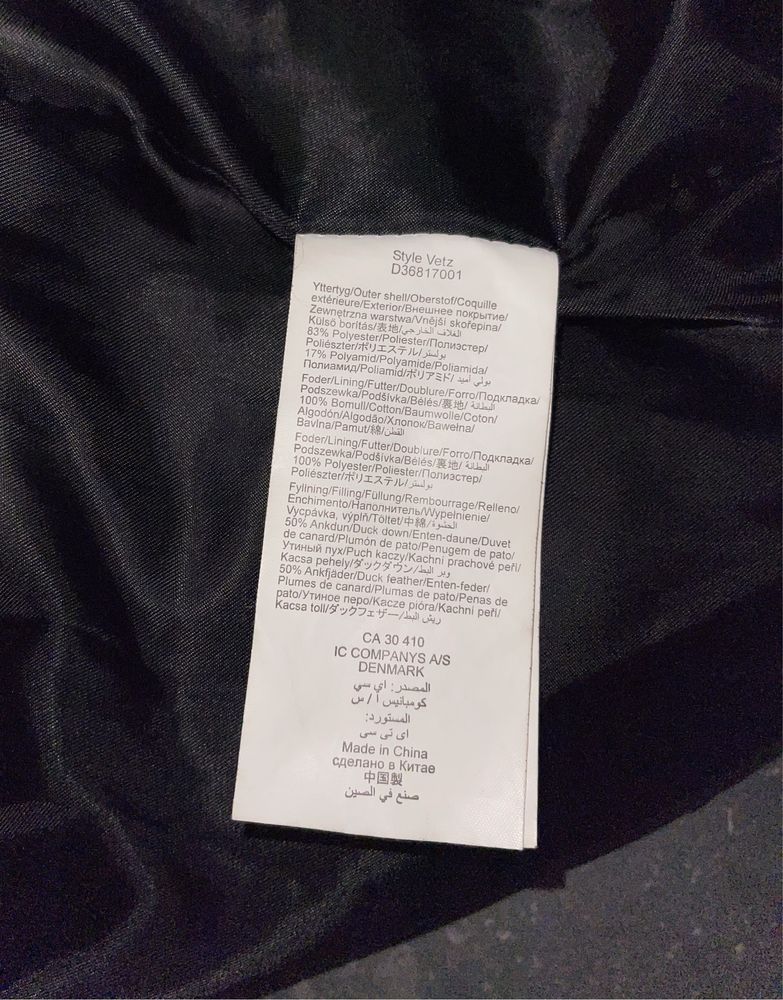 Style Vetz
D36817001
Yttertyg/Outer shell/Oberstof/Coquille
extérieure/Exterior/Внешнее покрытие/
Zewnętrzna warstwa/Vnější skořepina/
Külső borítás/表地/الغلاف الخارجي/
83% Polyester/Poliester/Полиэстер/
Poliészter/ポリエステル/بوليستر
17% Polyamid/Polyamide/Poliamida/
Полиамид/Poliamid/ポリアミド/بولي أميد
Foder/Lining/Futter/Doublure/Forro/Подкладка/
Podszewka/Podšívka/Bélés/裏地/البطانة
100% Bomull/Cotton/Baumwolle/Coton/
Algodón/Algodão/Хлопок/Bawełna/
Bavlna/Pamut/綿/القطن
Foder/Lining/Futter/Doublure/Forro/Подкладка/
Podszewka/Podšívka/Bélés/裏地/البطانة
100% Polyester/Poliester/Полиэстер/
Poliészter/ポリエステル/بوليستر
Fyllning/Filling/Füllung/Rembourrage/Relleno/
Enchimento/Наполнитель/Wypełnienie/
Vycpávka, výplň/Töltet/中綿/الحشوة
50% Ankdun/Duck down/Enten-daune/Duvet
de canard/Plumón de pato/Penugem de pato/
Утиный пух/Puch kaczy/Kachní prachové peří/
Kacsa pehely/ダックダウン/وبر البط
50% Ankfjäder/Duck feather/Enten-feder/
Plumes de canard/Plumas de pato/Penas de
pato/Утиное перо/Kacze pióra/Kachní peří/
Kacsa toll/ダックフェザー/ريش البط
CA 30 410
IC COMPANYS A/S
DENMARK
المصدر: اي سي
كومبانيس أ / س
المستورد:
اي تي سي
Made in China
сделано в Китае
中国製
صنع في الصين